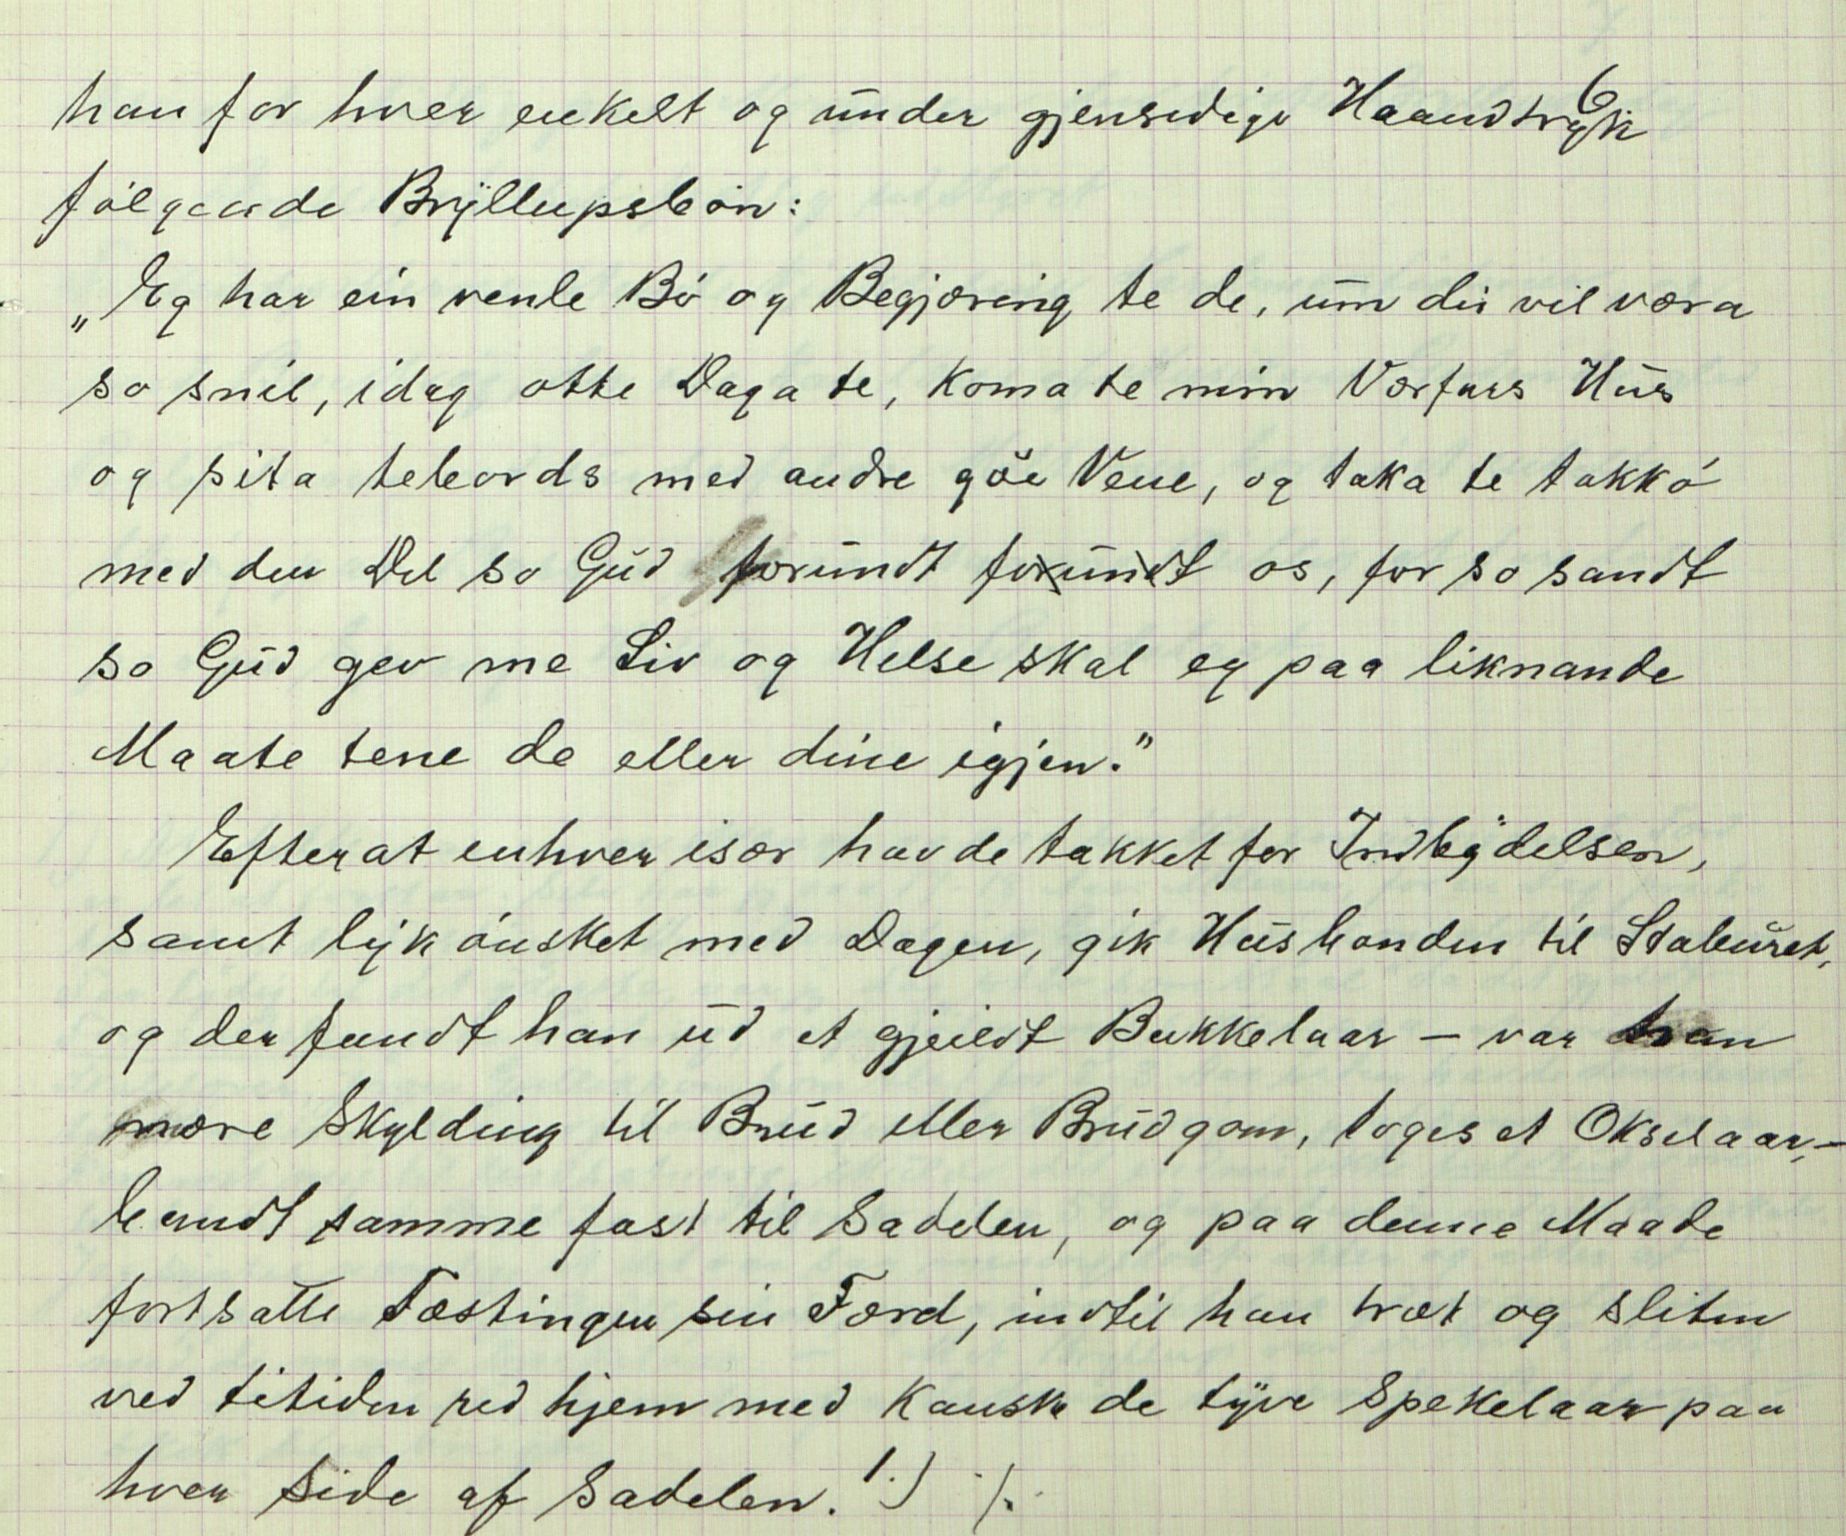 6
han for hver enkelt og under gjensidige Haandtryk
følgende Bryllupsbøn:
„Eg har ein venle Bø og Begjæring te de, um du vil væra
so snil, idag otte Daga te, koma te min Værfars Hus
og sita tebords med andre goe Vene, og taka te takkó
med den Del so Gud forundt forundt os, for so sandt
so Gud gev me Liv og Helse skal eg paa liknande
Maate tene de eller dine igjen."
Efterat enhver især havde takket for Indbydelsen,
samt lykønsket med Dagen, gik Husbonden til Staburet,
og der fandt han ud et gjeildt Bukkelaar – var han
nære Skylding til Brud eller Brudgom, toges et Okselaar, –
bandt samme fast til Sadelen, og paa denne Maade
fortsatte Fæstingen sin Færd, indtil han træt og sliten
ved titiden red hjem med kanske de tyve Spekelaar paa
hver Side af Sadelen. 1.) ./.